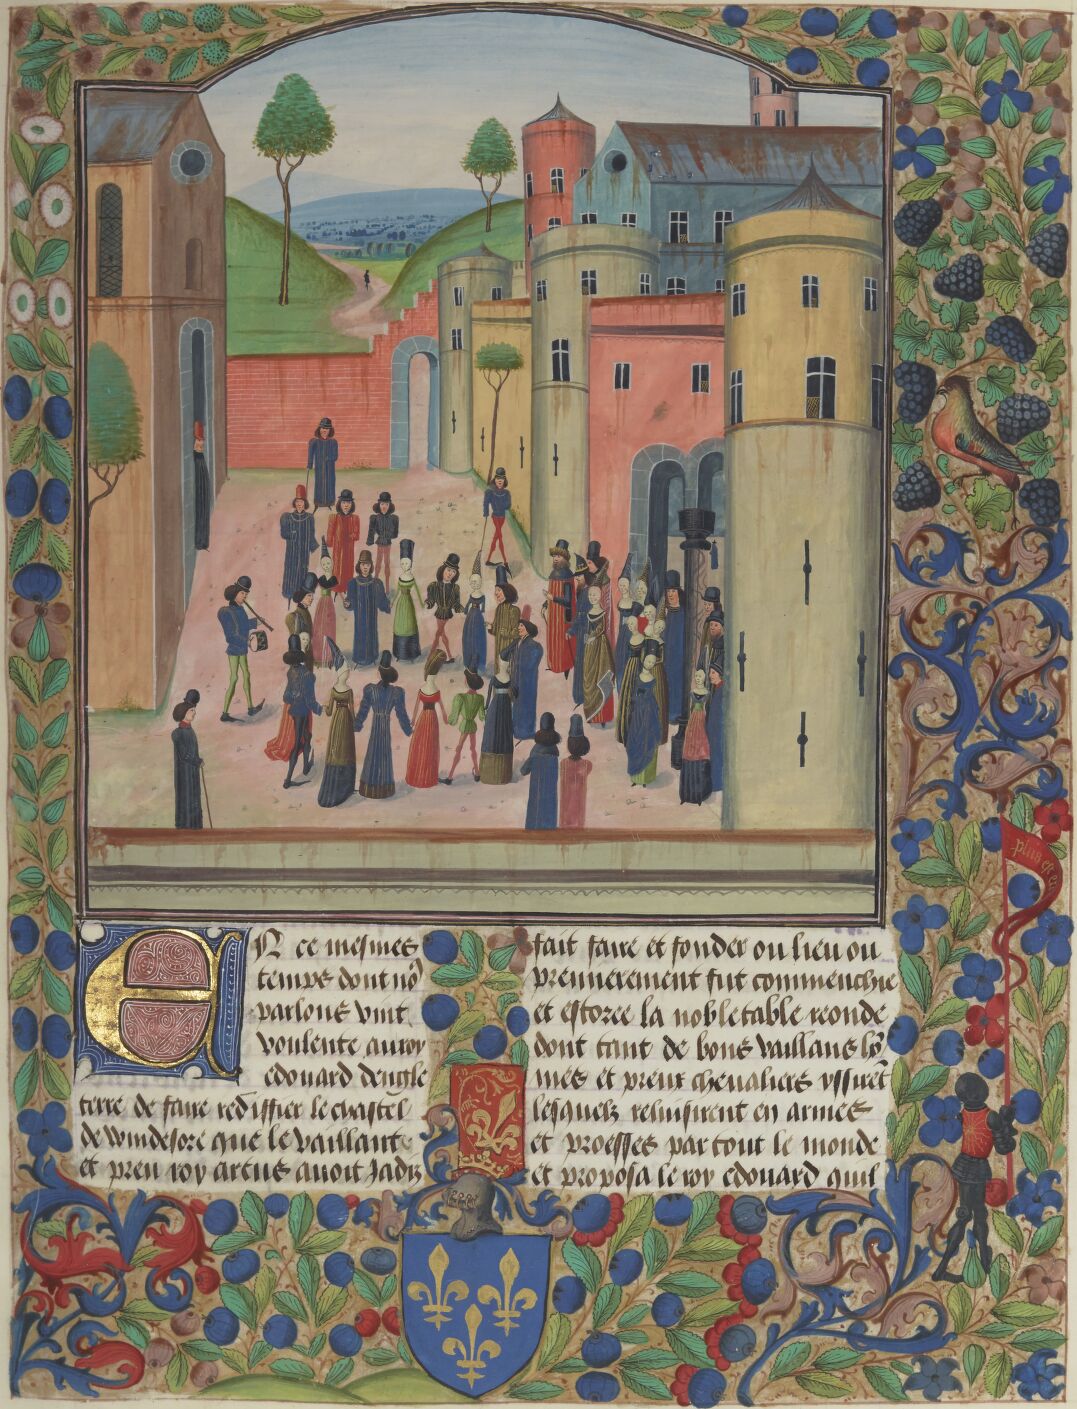 En ce mesmes
temps dont nō
parlons vint
voulente au roy
edouard dengle
terre de faire rediffier le chastel
de windesore que le vaillant
et preu roy artus avoit Jadiz
fait faire et fonder ou lieu ou
premierement fut commenchie
et estoree la noble table reonde
dont tant de bons vaillans hō
mes et preux chevaliers yssiret̄
lesquelz reluisirent en armes
et proesses par tout le monde
et proposa le roy edouard quil
plus est en